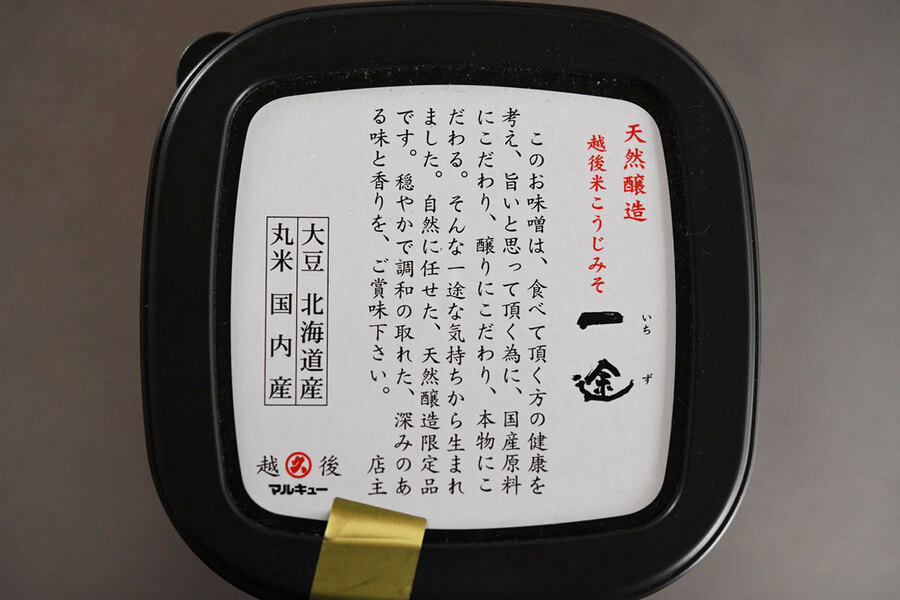 天然醸造
越後米こうじみそ
一途
いちず
このお味噌は、食べて頂く方の健康を
考え、旨いと思って頂く為に、国産原料
にこだわり、醸りにこだわり、本物にこ
だわる。そんな一途な気持ちから生まれ
ました。自然に任せた、天然醸造限定品
です。穏やかで調和の取れた、深みのあ
る味と香りを、ご賞味下さい。
店主
大豆 北海道産
丸米 国内産
越久後
マルキュー